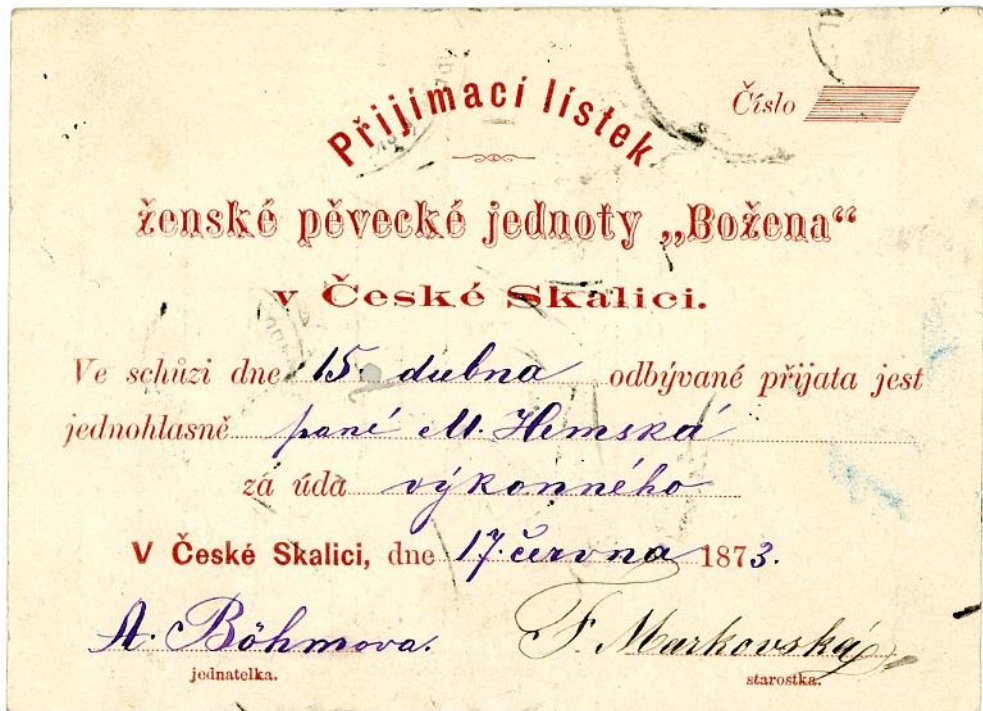 Přijímací lístek
Číslo
ženské pěvecké jednoty „Božena“
v České Skalici.
Ve schůzi dne 15. dubna odbývané přijata jest
jednohlasně paní M. Hemská
zá úda výkonného
V České Skalici, dne 17. června 1873.
A. Böhmova. F. Markovská
jednatelka. starostka.